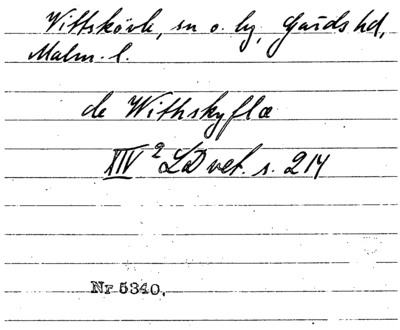 Vittskövle, sn o. by, Gärds hd,
Malm. l.
de Withskyflæ
XIV 2 LD vet. s. 214
Nr 5340.